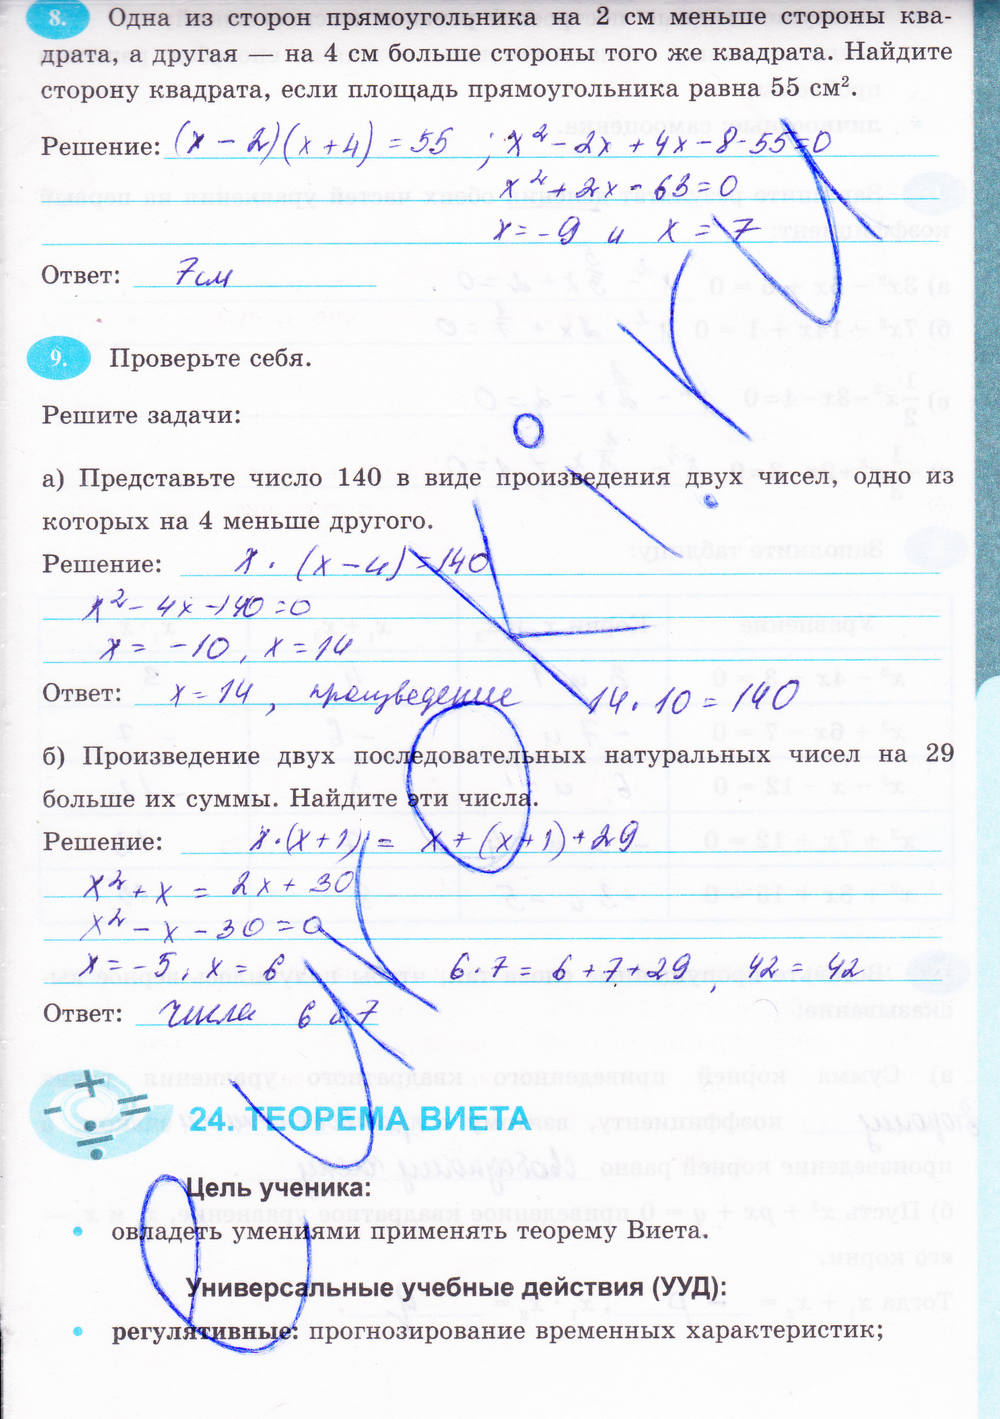 8. Одна из сторон прямоугольника на 2 см меньше стороны ква-
драта, а другая — на 4 см больше стороны того же квадрата. Найдите
сторону квадрата, если площадь прямоугольника равна 55 см².
Решение: (x - 2)(x + 4) = 55 ; x² - 2x + 4x - 8 - 55 = 0
x² + 2x - 63 = 0
x = -9 и x = 7
Ответ: 7см
9. Проверьте себя.
Решите задачи:
а) Представьте число 140 в виде произведения двух чисел, одно из
которых на 4 меньше другого.
Решение: x · (x - 4) = 140
x² - 4x - 140 = 0
x = -10, x = 14
Ответ: x = 14, произведение 14 · 10 = 140
б) Произведение двух последовательных натуральных чисел на 29
больше их суммы. Найдите эти числа.
Решение: x · (x + 1) = x + (x + 1) + 29
x² + x = 2x + 30
x² - x - 30 = 0
x = -5, x = 6 6 · 7 = 6 + 7 + 29, 42 = 42
Ответ: числа 6 и 7
24. ТЕОРЕМА ВИЕТА
Цель ученика:
• овладеть умениями применять теорему Виета.
Универсальные учебные действия (УУД):
• регулятивные: прогнозирование временных характеристик;